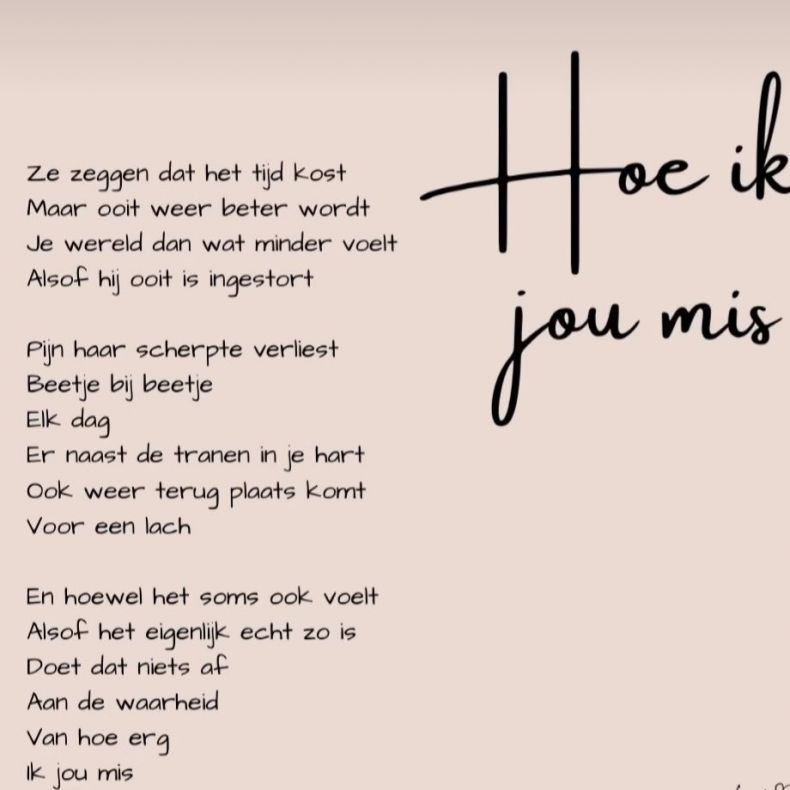 Hoe ik
jou mis
Ze zeggen dat het tijd kost
Maar ooit weer beter wordt
Je wereld dan wat minder voelt
Alsof hij ooit is ingestort
Pijn haar scherpte verliest
Beetje bij beetje
Elk dag
Er naast de tranen in je hart
Ook weer terug plaats komt
Voor een lach
En hoewel het soms ook voelt
Alsof het eigenlijk echt zo is
Doet dat niets af
Aan de waarheid
Van hoe erg
Ik jou mis